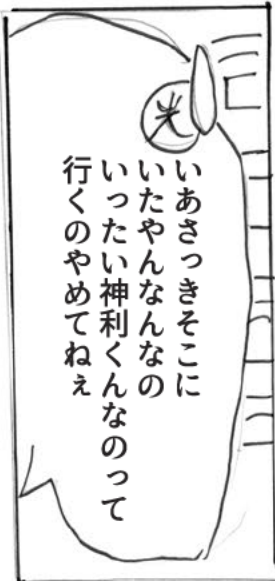 光
いあさっきそこに
いたやんなんなの
いったい神利くんなのって
行くのやめてねぇ